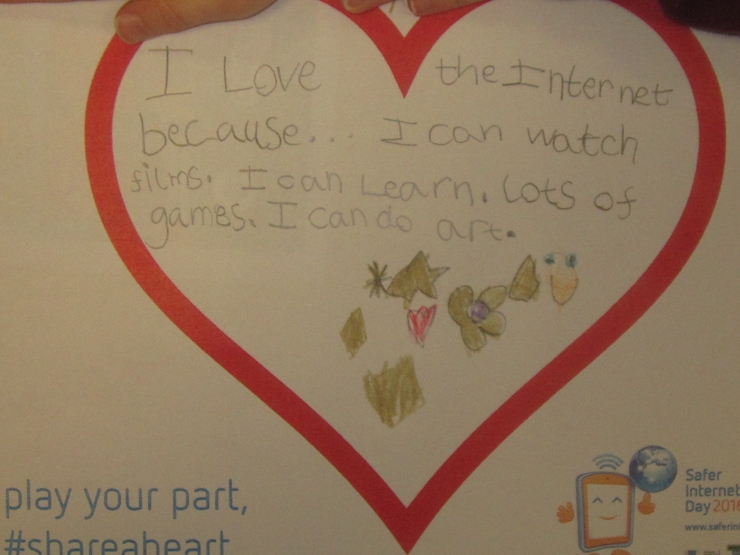 I Love the Internet
because... I can watch
films. I can Learn. Lots of
games. I can do art.
play your part,
#shareaheart
Safer
Internet
Day 2016
www.saferin